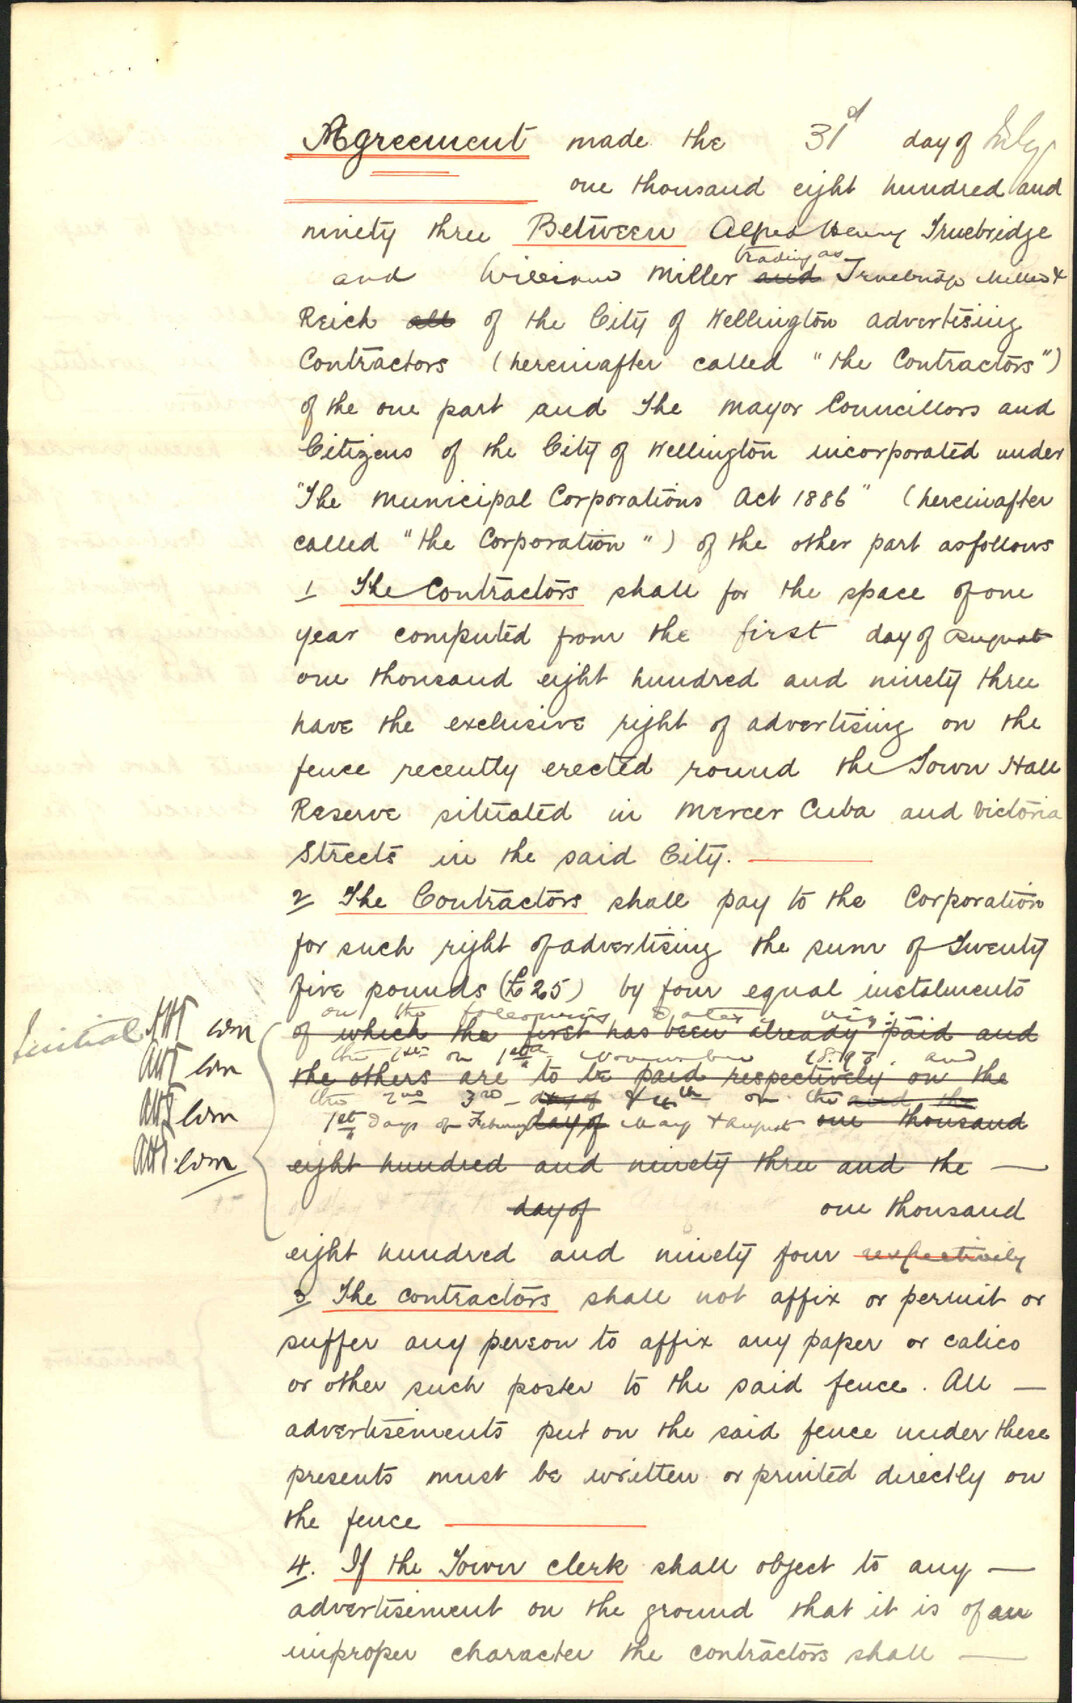 Agreement made the 31st day of July
one thousand eight hundred and
ninety three Between Alfred Henry Truebridge
trading as
and William Miller and Truebridge Miller &
Reich all of the City of Wellington advertising
Contractors (hereinafter called "the Contractors")
of the one part and The Mayor Councillors and
Citizens of the City of Wellington incorporated under
"The Municipal Corporations Act 1886" (hereinafter
called "the Corporation") of the other part as follows
1 The Contractors shall for the space of one
year computed from the first day of August
one thousand eight hundred and ninety three
have the exclusive right of advertising on the
fence recently erected round the Town Hall
Reserve situated in Mercer Cuba and Victoria
Streets in the said City.
2 The Contractors shall pay to the Corporation
for such right of advertising the sum of Twenty
five pounds (£25) by four equal instalments
on the following dates viz:
Initial AHT WM of which the first has been already paid and
the 1st on 1st November 1893 and
AHT WM the others are to be paid respectively on the
the 2nd 3rd day of & 4th on the and the
AHT WM 1st days of February day of May & August one thousand
AHT WM eight hundred and ninety three and the
day of one thousand
eight hundred and ninety four respectively
3 The contractors shall not affix or permit or
suffer any person to affix any paper or calico
or other such poster to the said fence. All
advertisements put on the said fence under these
presents must be written or printed directly on
the fence
4. If the Town Clerk shall object to any
advertisement on the ground that it is of an
improper character the contractors shall